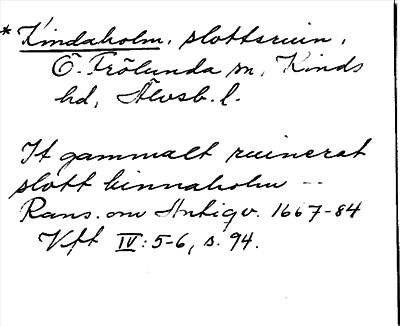 * Kindaholm, slottsruin,
Ö. Frölunda sn, Kinds
hd, Älvsb. l.
It gammalt ruinerat
slott kinnaholm --
Rans. om Antiqv. 1667-84
Vft IV: 5-6, s. 94.